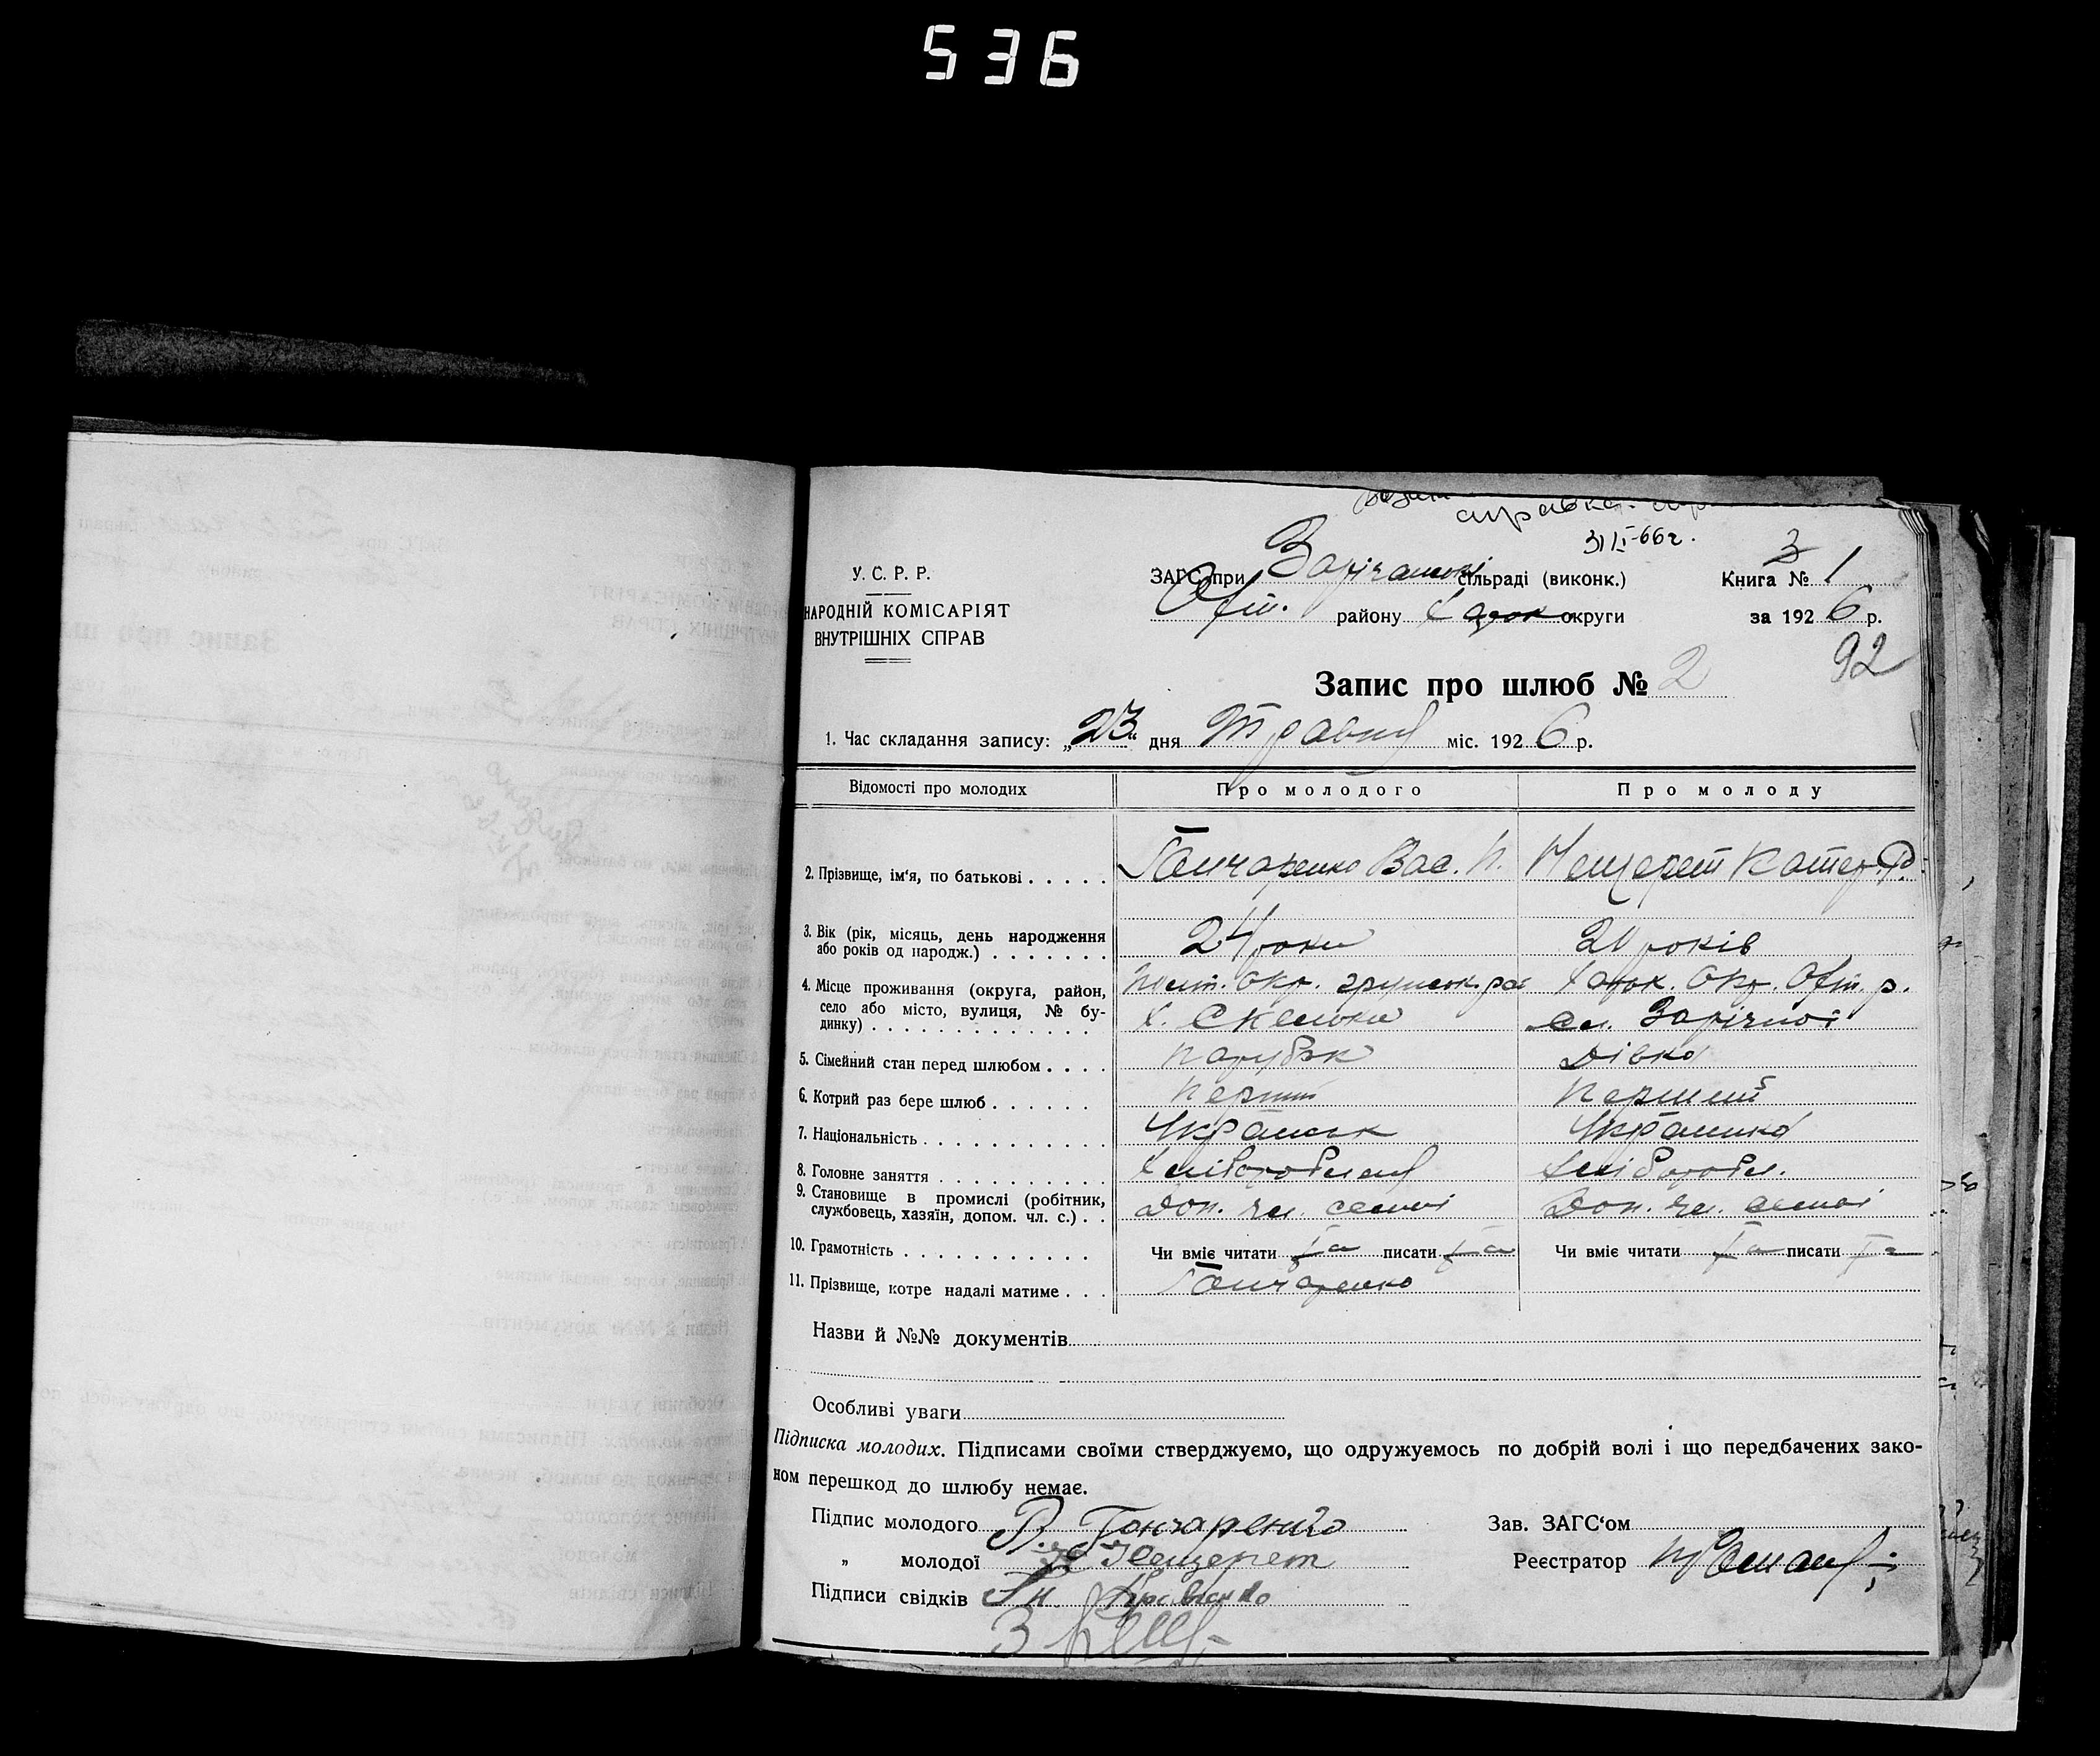 536
справка
31/I-66 г.
У. С. Р. Р.
НАРОДНІЙ КОМІСАРІЯТ
ВНУТРІШНІХ СПРАВ
ЗАГС при Зарічанські сільраді (виконк.)
Охт. району Харк округи
Книга № 3 1
за 1926 р.
92
Запис про шлюб № 2
1. Час складання запису: „23“ дня Травня міс. 1926 р.
Відомості про молодих Про молодого Про молоду
2. Прізвище, ім'я, по батькові . . . . . Гончаренко Вас. П. Нещерет Катер. Ф.
3. Вік (рік, місяць, день народження
або років од народж.) . . . . . . . 24 роки 20 років
4. Місце проживання (округа, район,
село або місто, вулиця, № бу-
динку) . . . . . . . . . . . . .
Полт. Окр. грунськ. ра Харк. Окр. Охт. р.
х. Скельки сл. Зарічної
5. Сімейний стан перед шлюбом . . . . парубок Дівка
6. Котрий раз бере шлюб . . . . . . Перший Перший
7. Національність . . . . . . . . . . . Українськ Українка
8. Головне заняття . . . . . . . . . . Хліборобська Хлібороб.
9. Становище в промислі (робітник,
службовець, хазяїн, допом. чл. с.) . . Доп. чл. семьі Доп. чл. семьі
10. Грамотність . . . . . . . . . . . Чи вміє читати Та писати Та Чи вміє читати Та писати Та
11. Прізвище, котре надалі матиме . . . Гончаренко
Назви й №№ документів
Особливі уваги
Підписка молодих. Підписами своїми стверджуємо, що одружуємось по добрій волі і що передбачених зако-
ном перешкод до шлюбу немає.
Підпис молодого В. Гончаренко Зав. ЗАГС'ом
„ молодої Нещерет Реєстратор
Підписи свідків